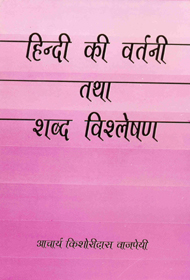 हिन्दी की वर्तनी
तथा
शब्द विश्लेषण
आचार्य किशोरीदास वाजपेयी